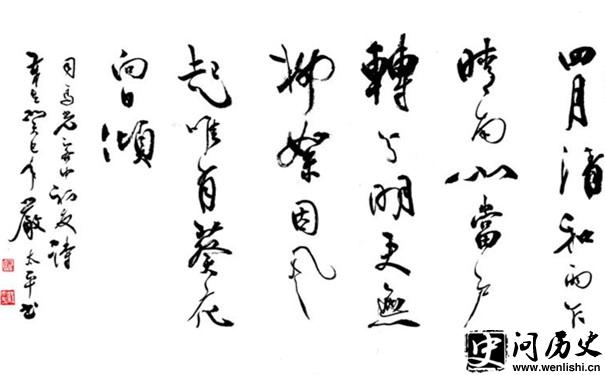 四月清和雨乍
晴南山當户
轉分明更無
柳絮因風
起唯有葵花
向日傾
司馬光客中初夏詩
癸巳年嚴太平书
史 问历史
www.wenlishi.cn